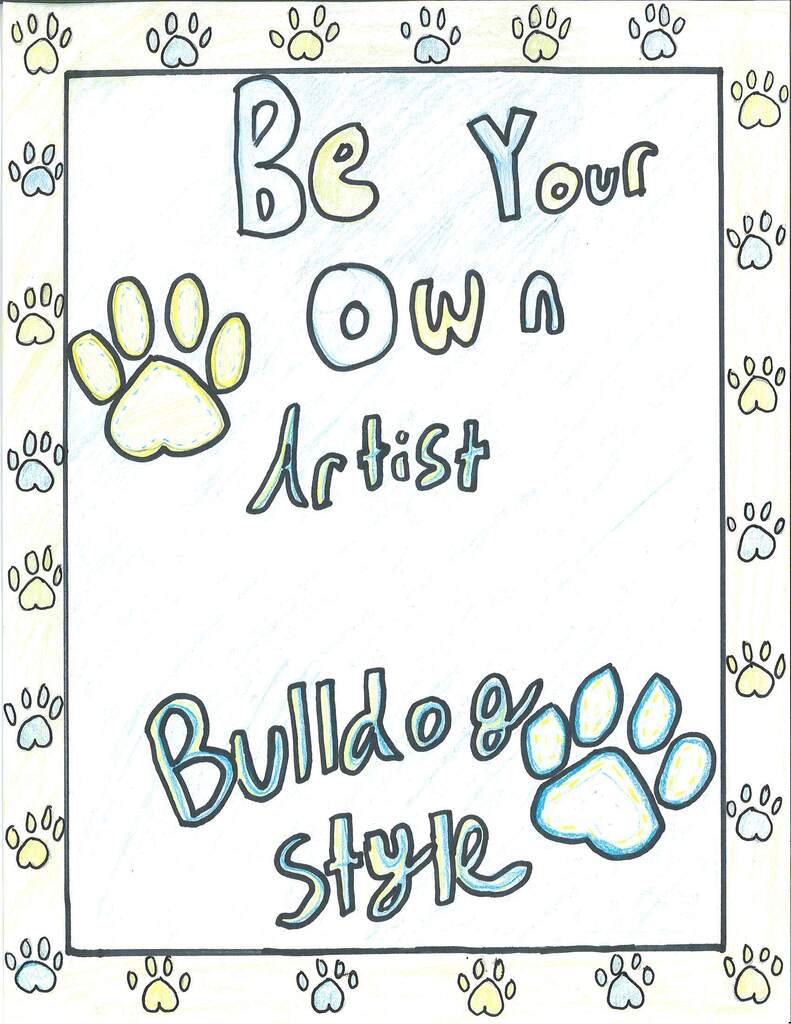 Be Your
Own
Artist
Bulldog
Style